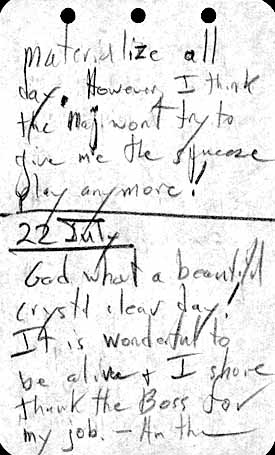 materialize all
day. However, I think
the Maj. wont try to
give me the squeeze
play anymore!
22 July
God, what a beautiful
crystl clear day!
It is wonderful to
be alive & I shore
thank the Boss for
my job. - Am the